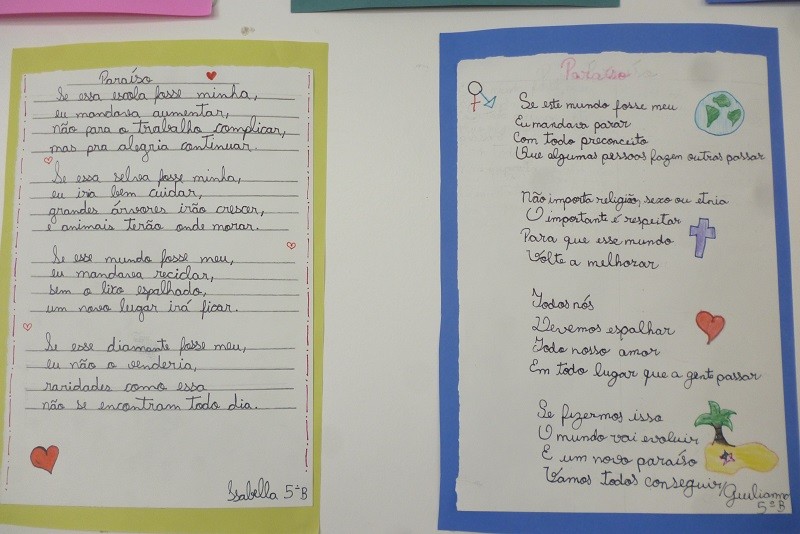 Paraíso
Se essa escola fosse minha,
eu mandava aumentar,
não para o trabalho complicar,
mas pra alegria continuar.
Se essa selva fosse minha,
eu iria bem cuidar,
grandes árvores irão crescer,
e animais terão onde morar.
Se esse mundo fosse meu,
eu mandava reciclar,
sem o lixo espalhado,
um novo lugar irá ficar.
Se esse diamante fosse meu,
eu não o venderia,
raridades como essa
não se encontram todo dia.
Isabella 5ºB
Paraíso
Se este mundo fosse meu
Eu mandava parar
Com todo preconceito
Que algumas pessoas fazem outras passar
Não importa religião, sexo ou etnia
O importante é respeitar
Para que esse mundo
Volte a melhorar
Todos nós
Devemos espalhar
Todo nosso amor
Em todo lugar que a gente passar
Se fizermos isso
O mundo vai evoluir
E um novo paraíso
Vamos todos conseguir
Giuliamo
5ºB